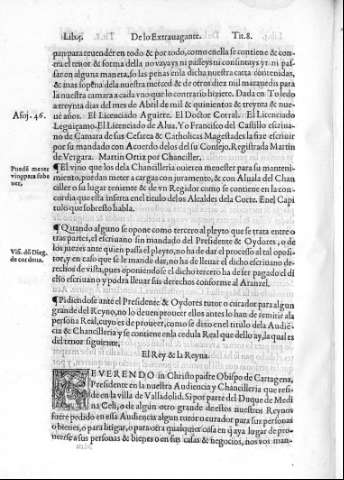 Lib. 5. De lo Extrauagante. Tit. 8.
para todo & por todo, como en ella se contiene & con-
tra el tenor & forma della no vayays ni passeys ni consintays yr ni pas-
sar en alguna manera, so las penas en la dicha nuestra carta contenidas,
& mas so pena dela nuestra merced & de otros diez mil marauedis para
la nuestra camara a cada vno que lo contrario hiziere. Dada en Toledo
a treynta dias del mes de Abril de mil & quinientos & treynta & nue-
Asoj. 46.
ue años. El Licenciado Aguirre. El Doctor Corral. El Licenciado
Leguiçamo. El Licenciado de Alua. Yo Francisco del Castillo escriua-
no de Camara de sus Cesarea & Catholicas Magestades la fize escriuir
por su mandado con Acuerdo delos del su Consejo. Registrada Martin
de Vergara. Martin Ortiz por Chanciller.
¶ El vino que los dela Chancilleria ouieren menester para su manteni-
miento, puedan meter a cargas con juramento, & con Aluala del Chan
ciller o su lugar teniente & de vn Regidor como se contiene en la con-
cordia que esta inserta en el titulo delos Alcaldes dela Corte. En el Capi
tulo que sobresto habla.
Puedē meter
vino para su be
uer.
¶ Quando alguno se opone como tercero al pleyto que se trata entre o
tras partes, el escriuano sin mandado del Presidente & Oydores, o de
los juezes ante quien passa el pleyto, no ha de dar el processo al tal oposi-
tor, y en caso que se le mande dar, no ha de lleuar el dicho escriuano de-
rechos de vista, pues oponiendose el dicho tercero ha de ser pagado el di
cho escriuano y podra lleuar sus derechos conforme al Aranzel.
¶ Pidiendose ante el Presidente & Oydores tutor o curador para algun
grande del Reyno, no lo deuen proueer ellos antes lo han de remitir ala
persona Real, cuyo es de proueer, como se dixo en el titulo dela Audiē
cia & Chancilleria y se contiene en la cedula Real que dello ay, la qual es
del tenor siguiente.
El Rey & la Reyna.
REVERENDO in Christo padre Obispo de Cartagena,
Presidente en la nuestra Audiencia y Chancilleria que resi-
de en la villa de Valladolid. Si por parte del Duque de Medi
na Celi, o de algun otro grande destos nuestros Reynos
fuere pedido en essa Audiencia algun tutor o curador para sus personas
o bienes, o para litigar, o para otra qualquier cosa en q̄ aya lugar de pro-
ueerse a sus personas & bienes o en sus casas & negocios, nos vos man-